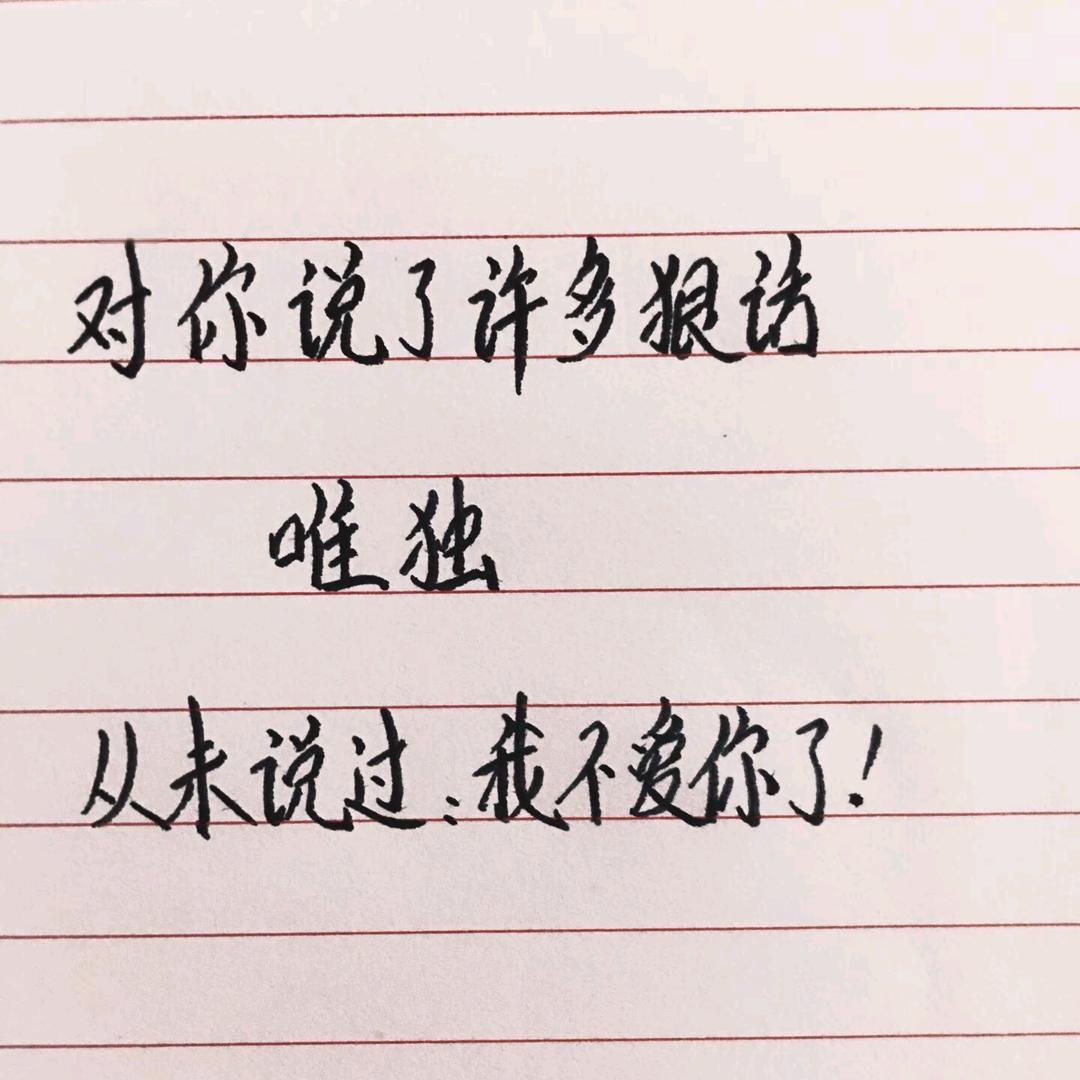 对你说了许多狠话
唯独
从未说过:我不爱你了!